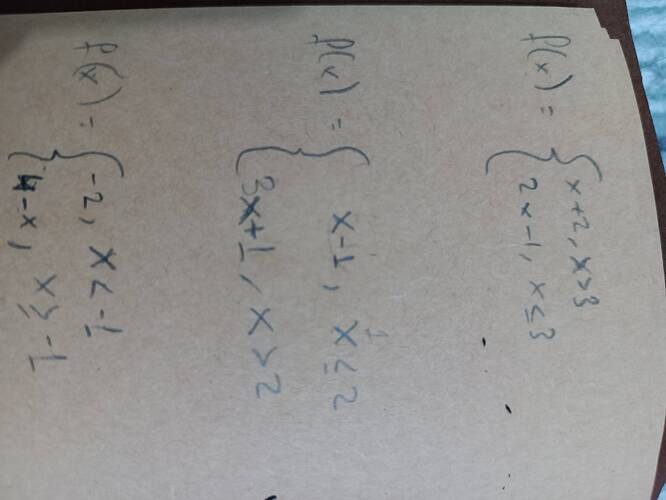 f(x) = { x+2, x>3
2x-1, x≤3
f(x) = { x-1, x≤2
3x+1, x>2
f(x) = { -2, x<-1
4-x, x≥-1